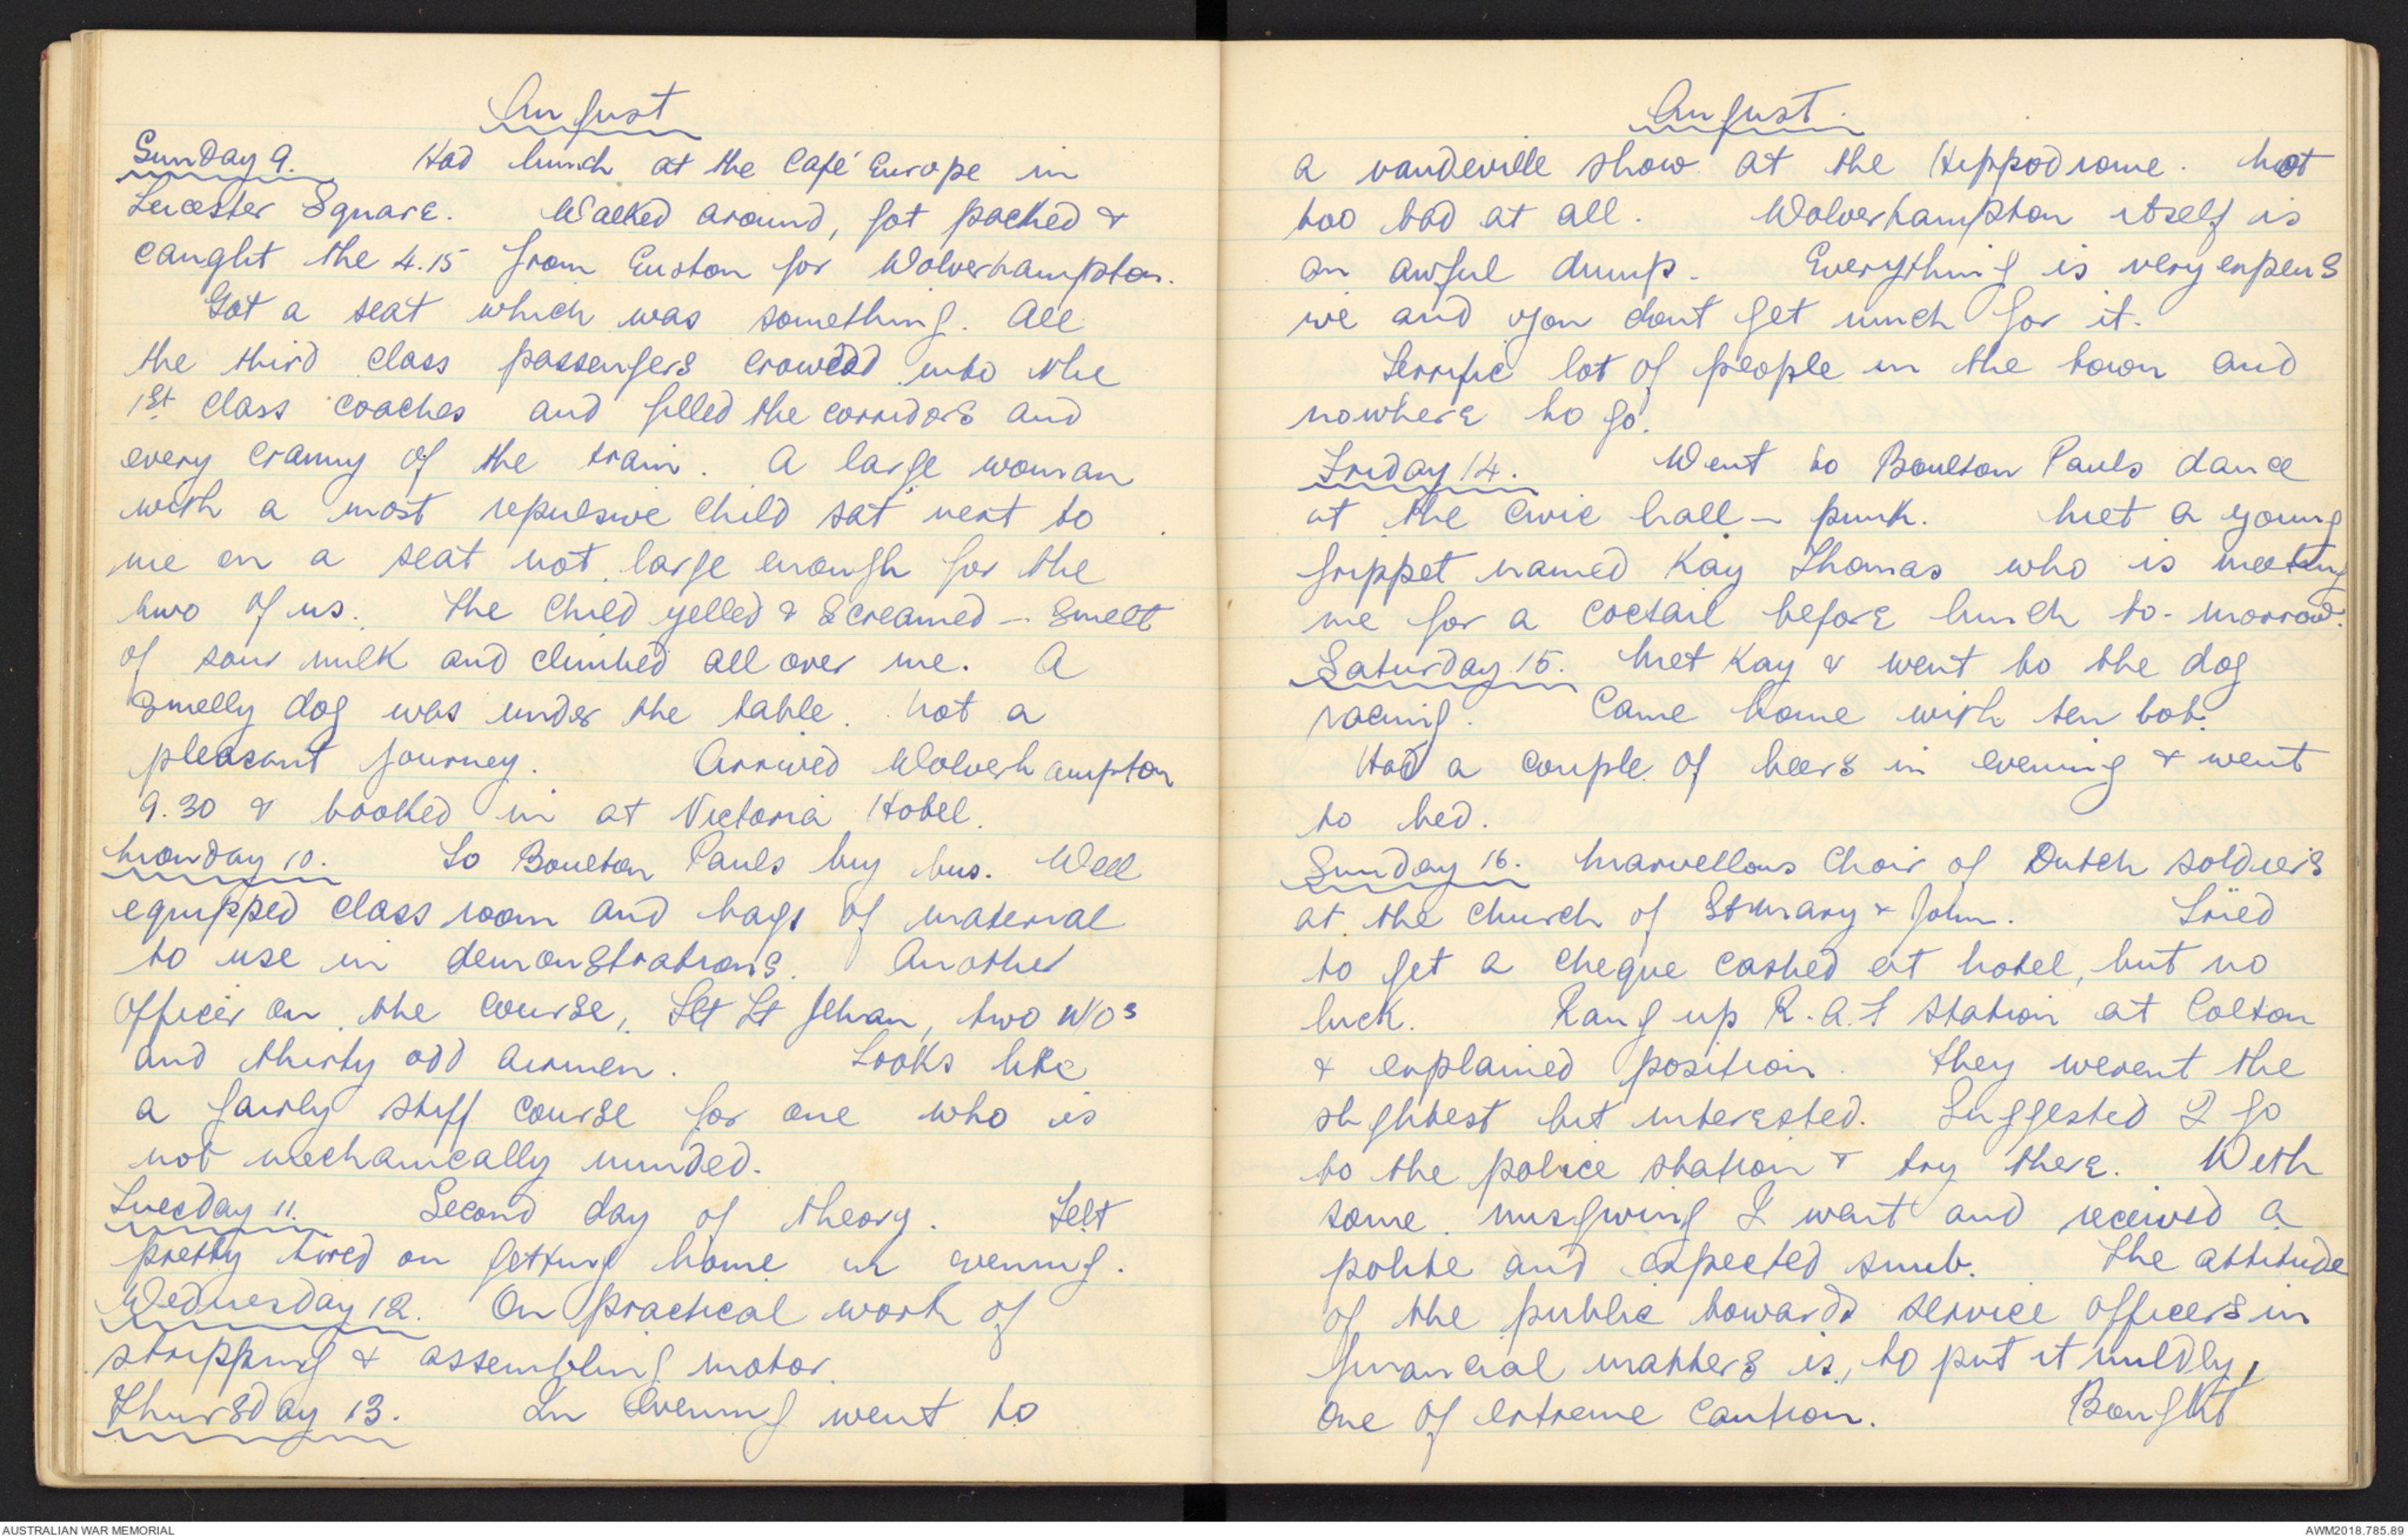 August
Sunday 9. Had lunch at the Café Europe in
Leicester Square. Walked around, got packed &
caught the 4.15 from Euston for Wolverhampton.
Got a seat which was something. All
the third class passengers crowded into the
1st class coaches and filled the corridors and
every cranny of the train. A large woman
with a most repulsive child sat next to
me on a seat not large enough for the
two of us. The child yelled & screamed - smelt
of sour milk and climbed all over me. A
smelly dog was under the table. Not a
pleasant journey. Arrived Wolverhampton
9.30 & booked in at Victoria Hotel.
Monday 10. To Boulton Pauls by bus. Well
equipped class room and bags of material
to use in demonstrations. Another
officer on the course, Flt Lt Jehan, two W/Os
and thirty odd airmen. Looks like
a fairly stiff course for one who is
not mechanically minded.
Tuesday 11. Second day of theory. Felt
pretty tired on getting home in evening.
Wednesday 12. On practical work of
stripping & assembling motor.
Thursday 13. In evening went to
August.
a vaudeville show at the Hippodrome. Not
too bad at all. Wolverhampton itself is
an awful dump. Everything is very expens
ive and you dont get much for it.
Terrific lot of people in the town and
nowhere to go.
Friday 14. Went to Boulton Pauls dance
at the Civic hall - punk. Met a young
frippet named Kay Thomas who is meeting
me for a coctail before lunch to-morrow.
Saturday 15. Met Kay & went to the dog
racing. Came home with ten bob.
Had a couple of beers in evening & went
to bed.
Sunday 16. Marvellous Choir of Dutch soldiers
at the church of St Mary & John. Tried
to get a cheque cashed at hotel, but no
luck. Rang up R.A.F station at Colton
& explained position. They werent the
slightest bit interested. Suggested I go
to the police station & try there. With
some misgiving I went and received a
polite and expected snub. The attitude
of the public towards service officers in
financial matters is, to put it mildly,
one of extreme caution. Bought
AUSTRALIAN WAR MEMORIAL
AWM2018.785.89